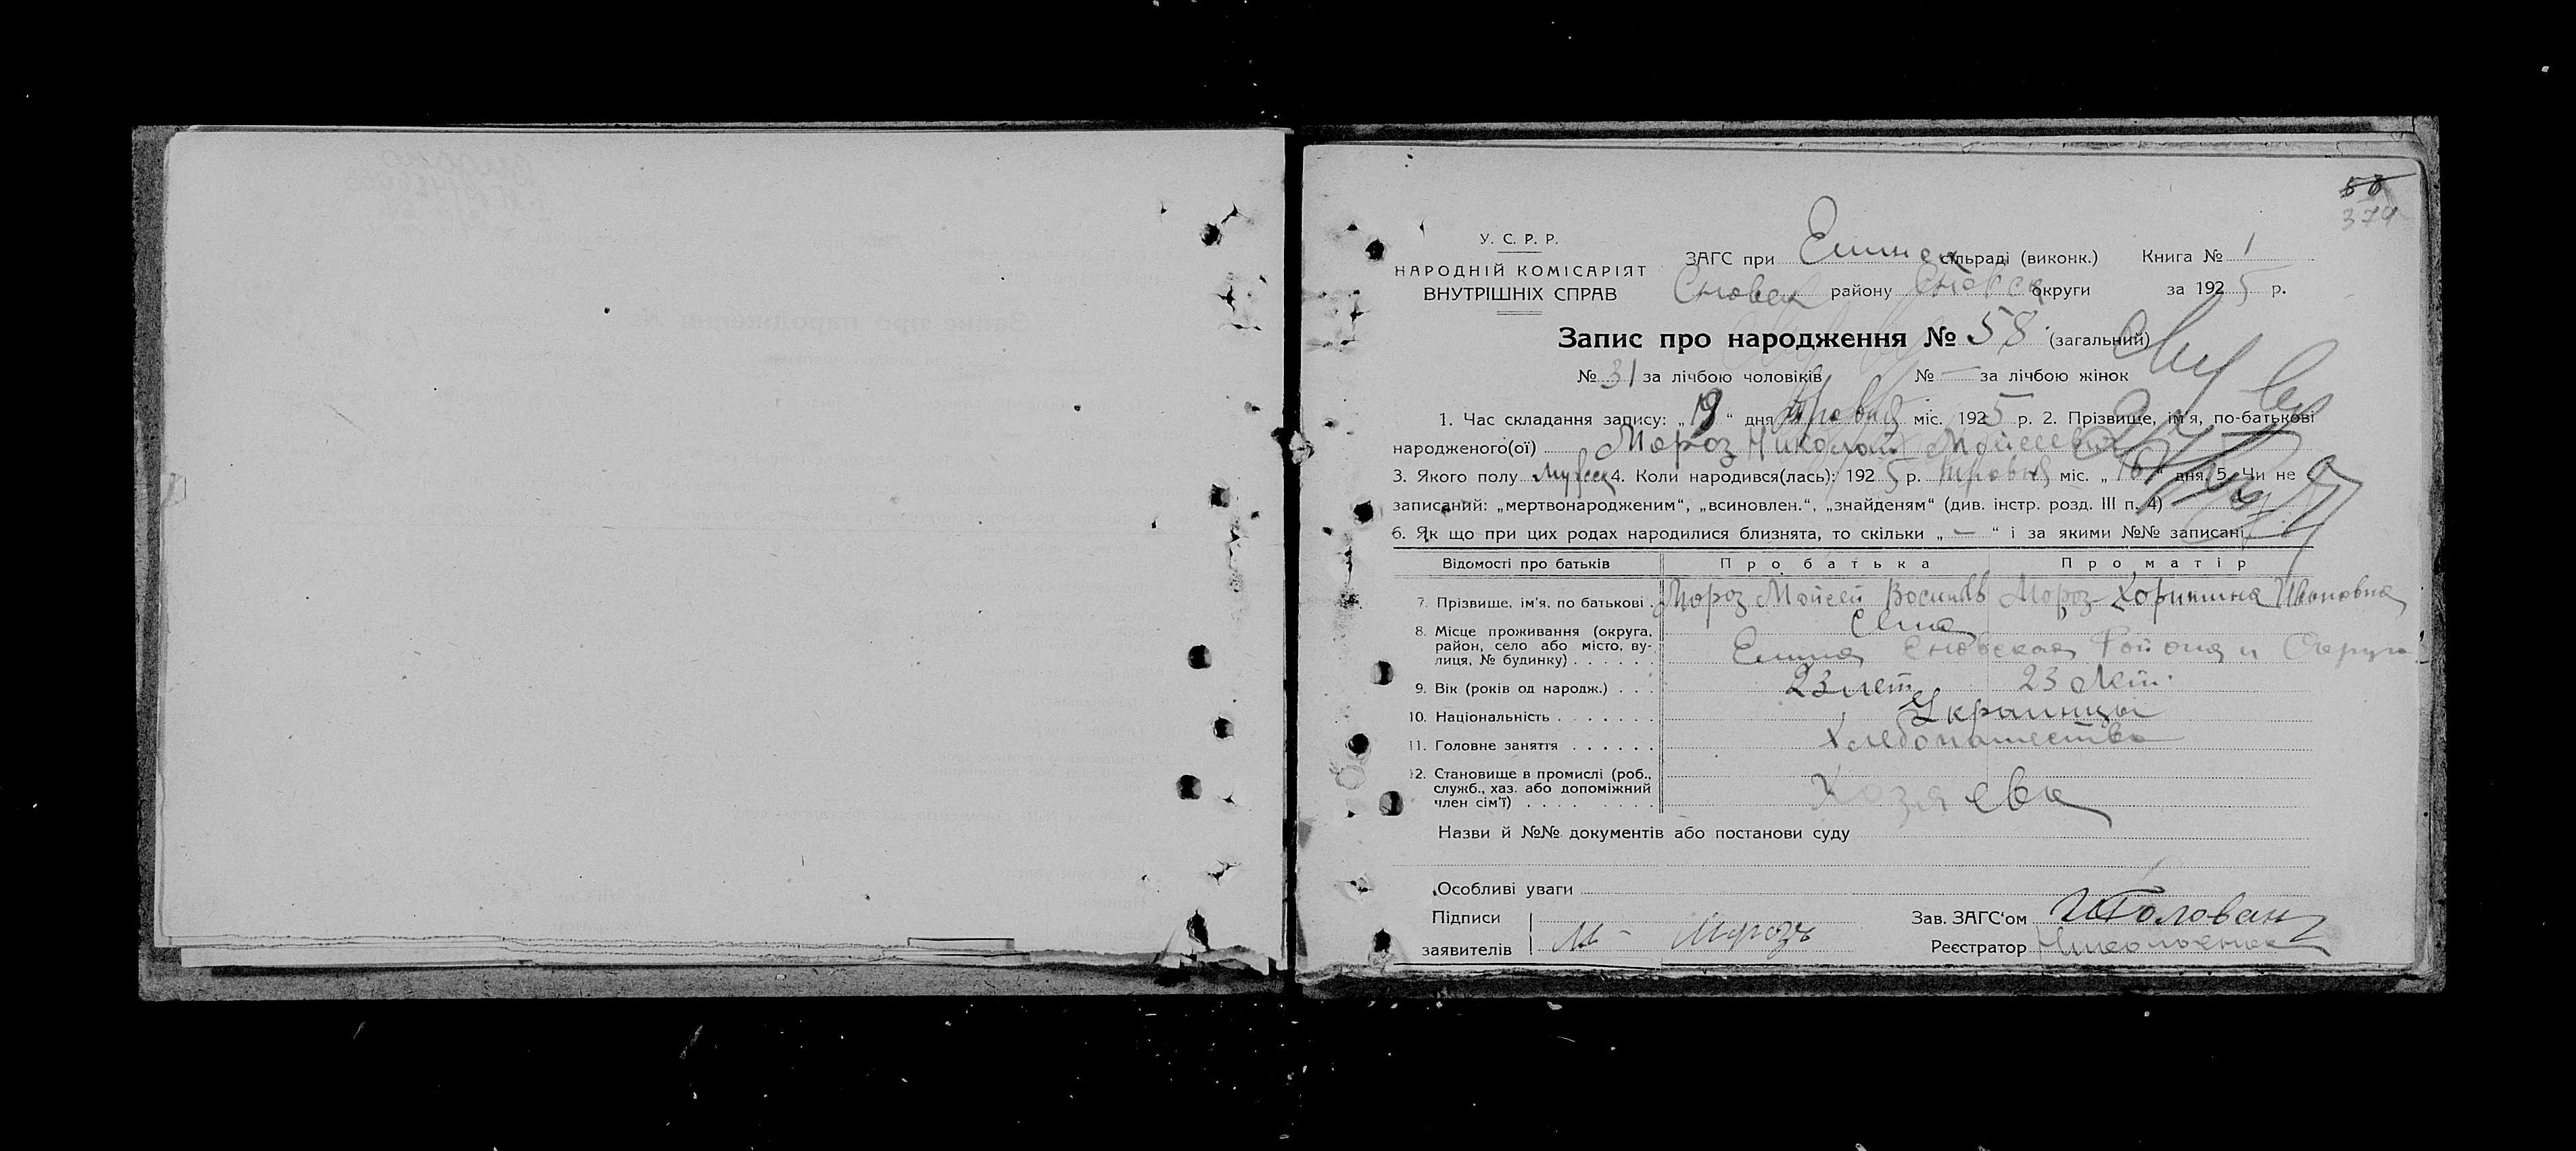 58
379
У. С. Р. Р.
НАРОДНІЙ КОМІСАРІЯТ
ВНУТРІШНІХ СПРАВ
ЗАГС при сільраді (виконк.) Книга № 1
Сновск району Сновск округи за 1925 р.
Запис про народження № 58 (загальний)
№ 31 за лічбою чоловіків № — за лічбою жінок
1. Час складання запису: „19“ дня травня міс. 1925 р. 2. Прізвище, ім'я, по-батькові
народженого(ої) Мороз Николай Мойсеев
3. Якого полу Мужск 4. Коли народився(лась): 1925 р. травня міс. „16“ дня. 5. Чи не
записаний: „мертвонародженим“, „всиновлен.“, „знайденям“ (див. інстр. розд. III п. 4)
6. Як що при цих родах народилися близнята, то скільки „ — “ і за якими №№ записані
Відомості про батьків Про батька Про матір
7. Прізвище, ім'я, по батькові . Мороз Мойсей Мороз Ивановна
8. Місце проживання (округа, район, село або місто, вулиця, № будинку) . . . . . . Села Сновскаа Района и Округа
9. Вік (років од народж.) . . . 23 лет 23 Лет.
10. Національність . . . . . . . Украинцы
11. Головне заняття . . . . . . Хлебопашество
12. Становище в промислі (роб., служб., хаз. або допоміжний член сім'ї) . . . . . . . . Хозяева
Назви й №№ документів або постанови суду
Особливі уваги
Підписи
заявителів М - Морозъ
Зав. ЗАГС‘ом
Реєстратор